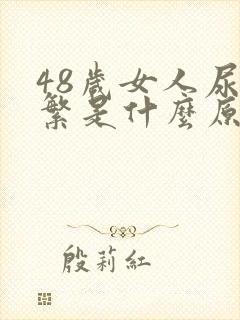 48歲女人尿
繁是什麼原
殷莉紅